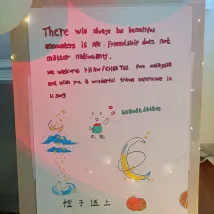 There will always be beautiful
in life. Friendship does not
matter nationality.
we welcome from malaysia
and wish you a wonderful travel experience in
Li Jiang
Selamat datang
橙子送上